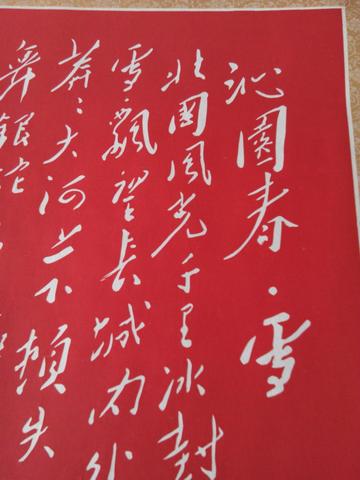 沁園春·雪
北國風光千里冰封
雪飄望長城内外
莽〻大河上下頓失
舞銀蛇